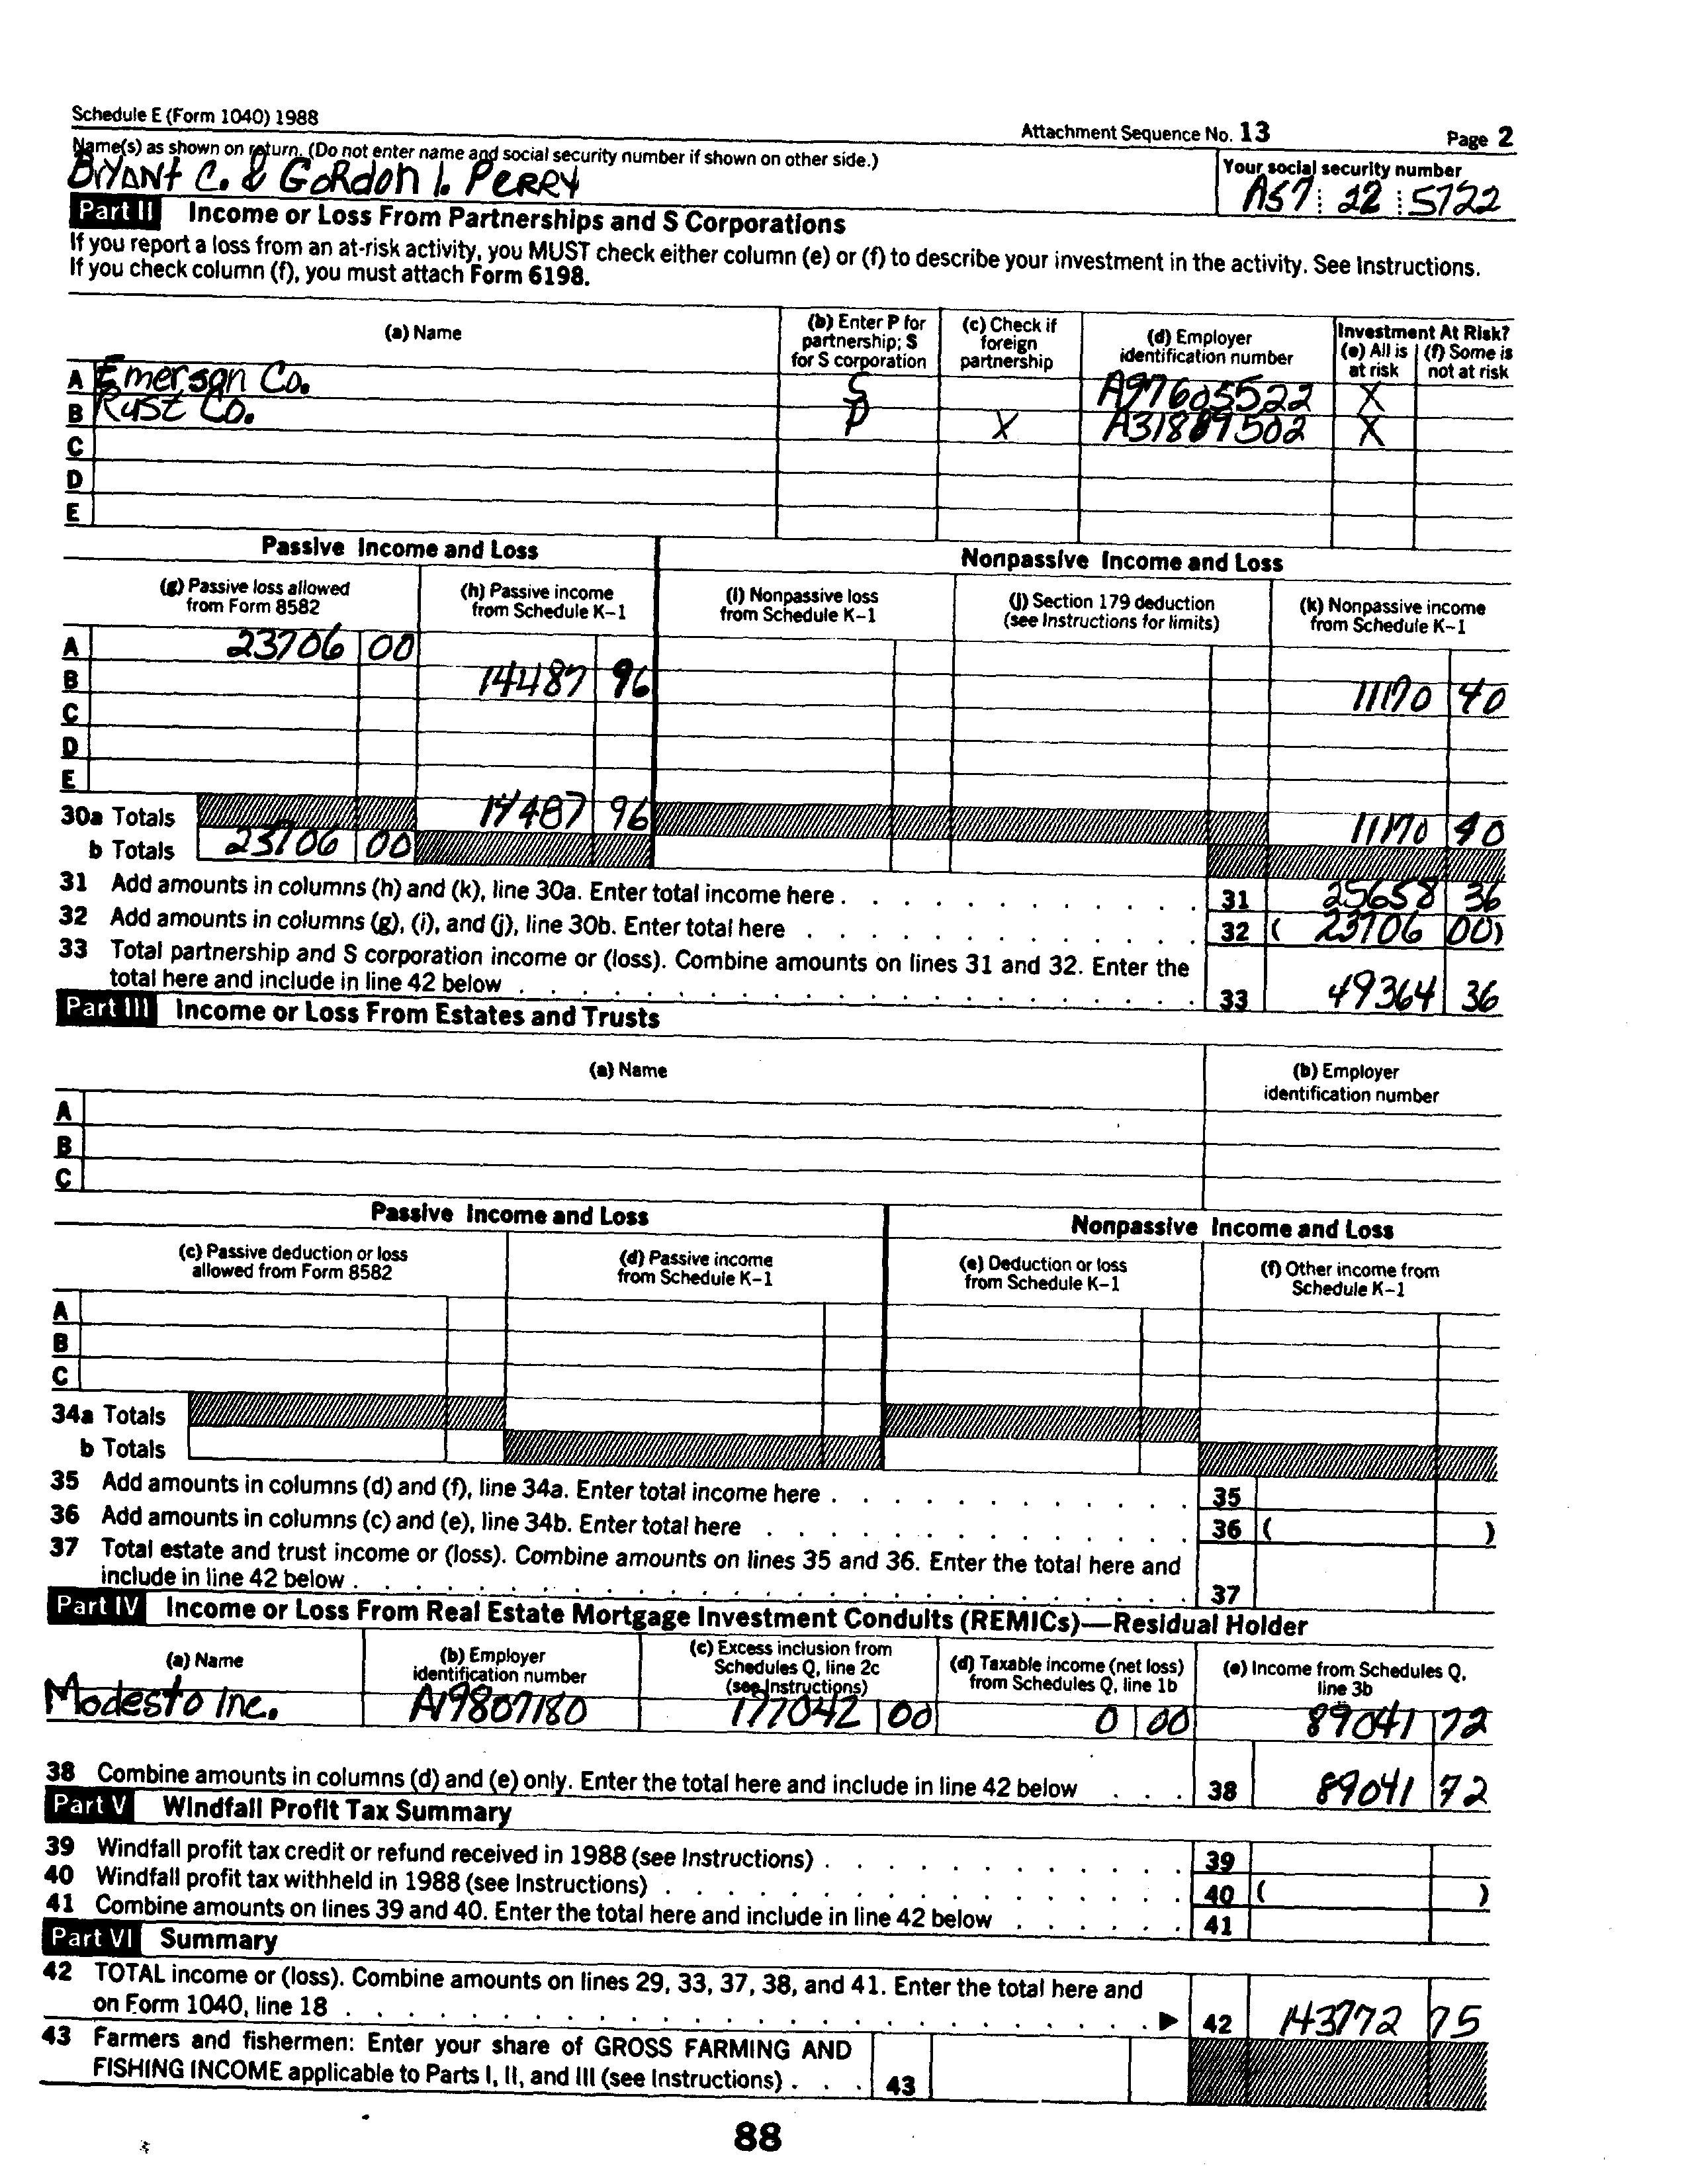 Schedule E (Form 1040) 1988
Attachment Sequence No. 13
Page 2
Name(s) as shown on return. (Do not enter name and social security number if shown on other side.)
Your social security number
Bryant C. & Gordon I. Perry
A57 22 5722
Part II Income or Loss From Partnerships and S Corporations
If you report a loss from an at-risk activity, you MUST check either column (e) or (f) to describe your investment in the activity. See Instructions.
If you check column (f), you must attach Form 6198.
(a) Name
(b) Enter P for partnership; S for S corporation
(c) Check if foreign partnership
(d) Employer identification number
Investment At Risk?
(e) All is at risk
(f) Some is not at risk
A Emerson Co. S A97605522 X
B Rust Co. P X A31889502 X
C
D
E
Passive Income and Loss
Nonpassive Income and Loss
(g) Passive loss allowed from Form 8582
(h) Passive income from Schedule K-1
(i) Nonpassive loss from Schedule K-1
(j) Section 179 deduction (see Instructions for limits)
(k) Nonpassive income from Schedule K-1
A 23706 00
B 14487 96 11170 40
C
D
E
30a Totals 14487 96 11170 40
b Totals 23706 00
31 Add amounts in columns (h) and (k), line 30a. Enter total income here . 31 25658 36
32 Add amounts in columns (g), (i), and (j), line 30b. Enter total here . 32 ( 23706 00)
33 Total partnership and S corporation income or (loss). Combine amounts on lines 31 and 32. Enter the
total here and include in line 42 below . 33 49364 36
Part III Income or Loss From Estates and Trusts
(a) Name
(b) Employer identification number
A
B
C
Passive Income and Loss
Nonpassive Income and Loss
(c) Passive deduction or loss allowed from Form 8582
(d) Passive income from Schedule K-1
(e) Deduction or loss from Schedule K-1
(f) Other income from Schedule K-1
A
B
C
34a Totals
b Totals
35 Add amounts in columns (d) and (f), line 34a. Enter total income here . 35
36 Add amounts in columns (c) and (e), line 34b. Enter total here . 36 ( )
37 Total estate and trust income or (loss). Combine amounts on lines 35 and 36. Enter the total here and
include in line 42 below . 37
Part IV Income or Loss From Real Estate Mortgage Investment Conduits (REMICs)—Residual Holder
(a) Name
(b) Employer identification number
(c) Excess inclusion from Schedules Q, line 2c (see Instructions)
(d) Taxable income (net loss) from Schedules Q, line 1b
(e) Income from Schedules Q, line 3b
Modesto Inc. A19807180 177042 00 0 00 89041 72
38 Combine amounts in columns (d) and (e) only. Enter the total here and include in line 42 below . 38 89041 72
Part V Windfall Profit Tax Summary
39 Windfall profit tax credit or refund received in 1988 (see Instructions) . 39
40 Windfall profit tax withheld in 1988 (see Instructions) . 40 ( )
41 Combine amounts on lines 39 and 40. Enter the total here and include in line 42 below . 41
Part VI Summary
42 TOTAL income or (loss). Combine amounts on lines 29, 33, 37, 38, and 41. Enter the total here and
on Form 1040, line 18 . ► 42 143772 75
43 Farmers and fishermen: Enter your share of GROSS FARMING AND
FISHING INCOME applicable to Parts I, II, and III (see Instructions) . 43
88